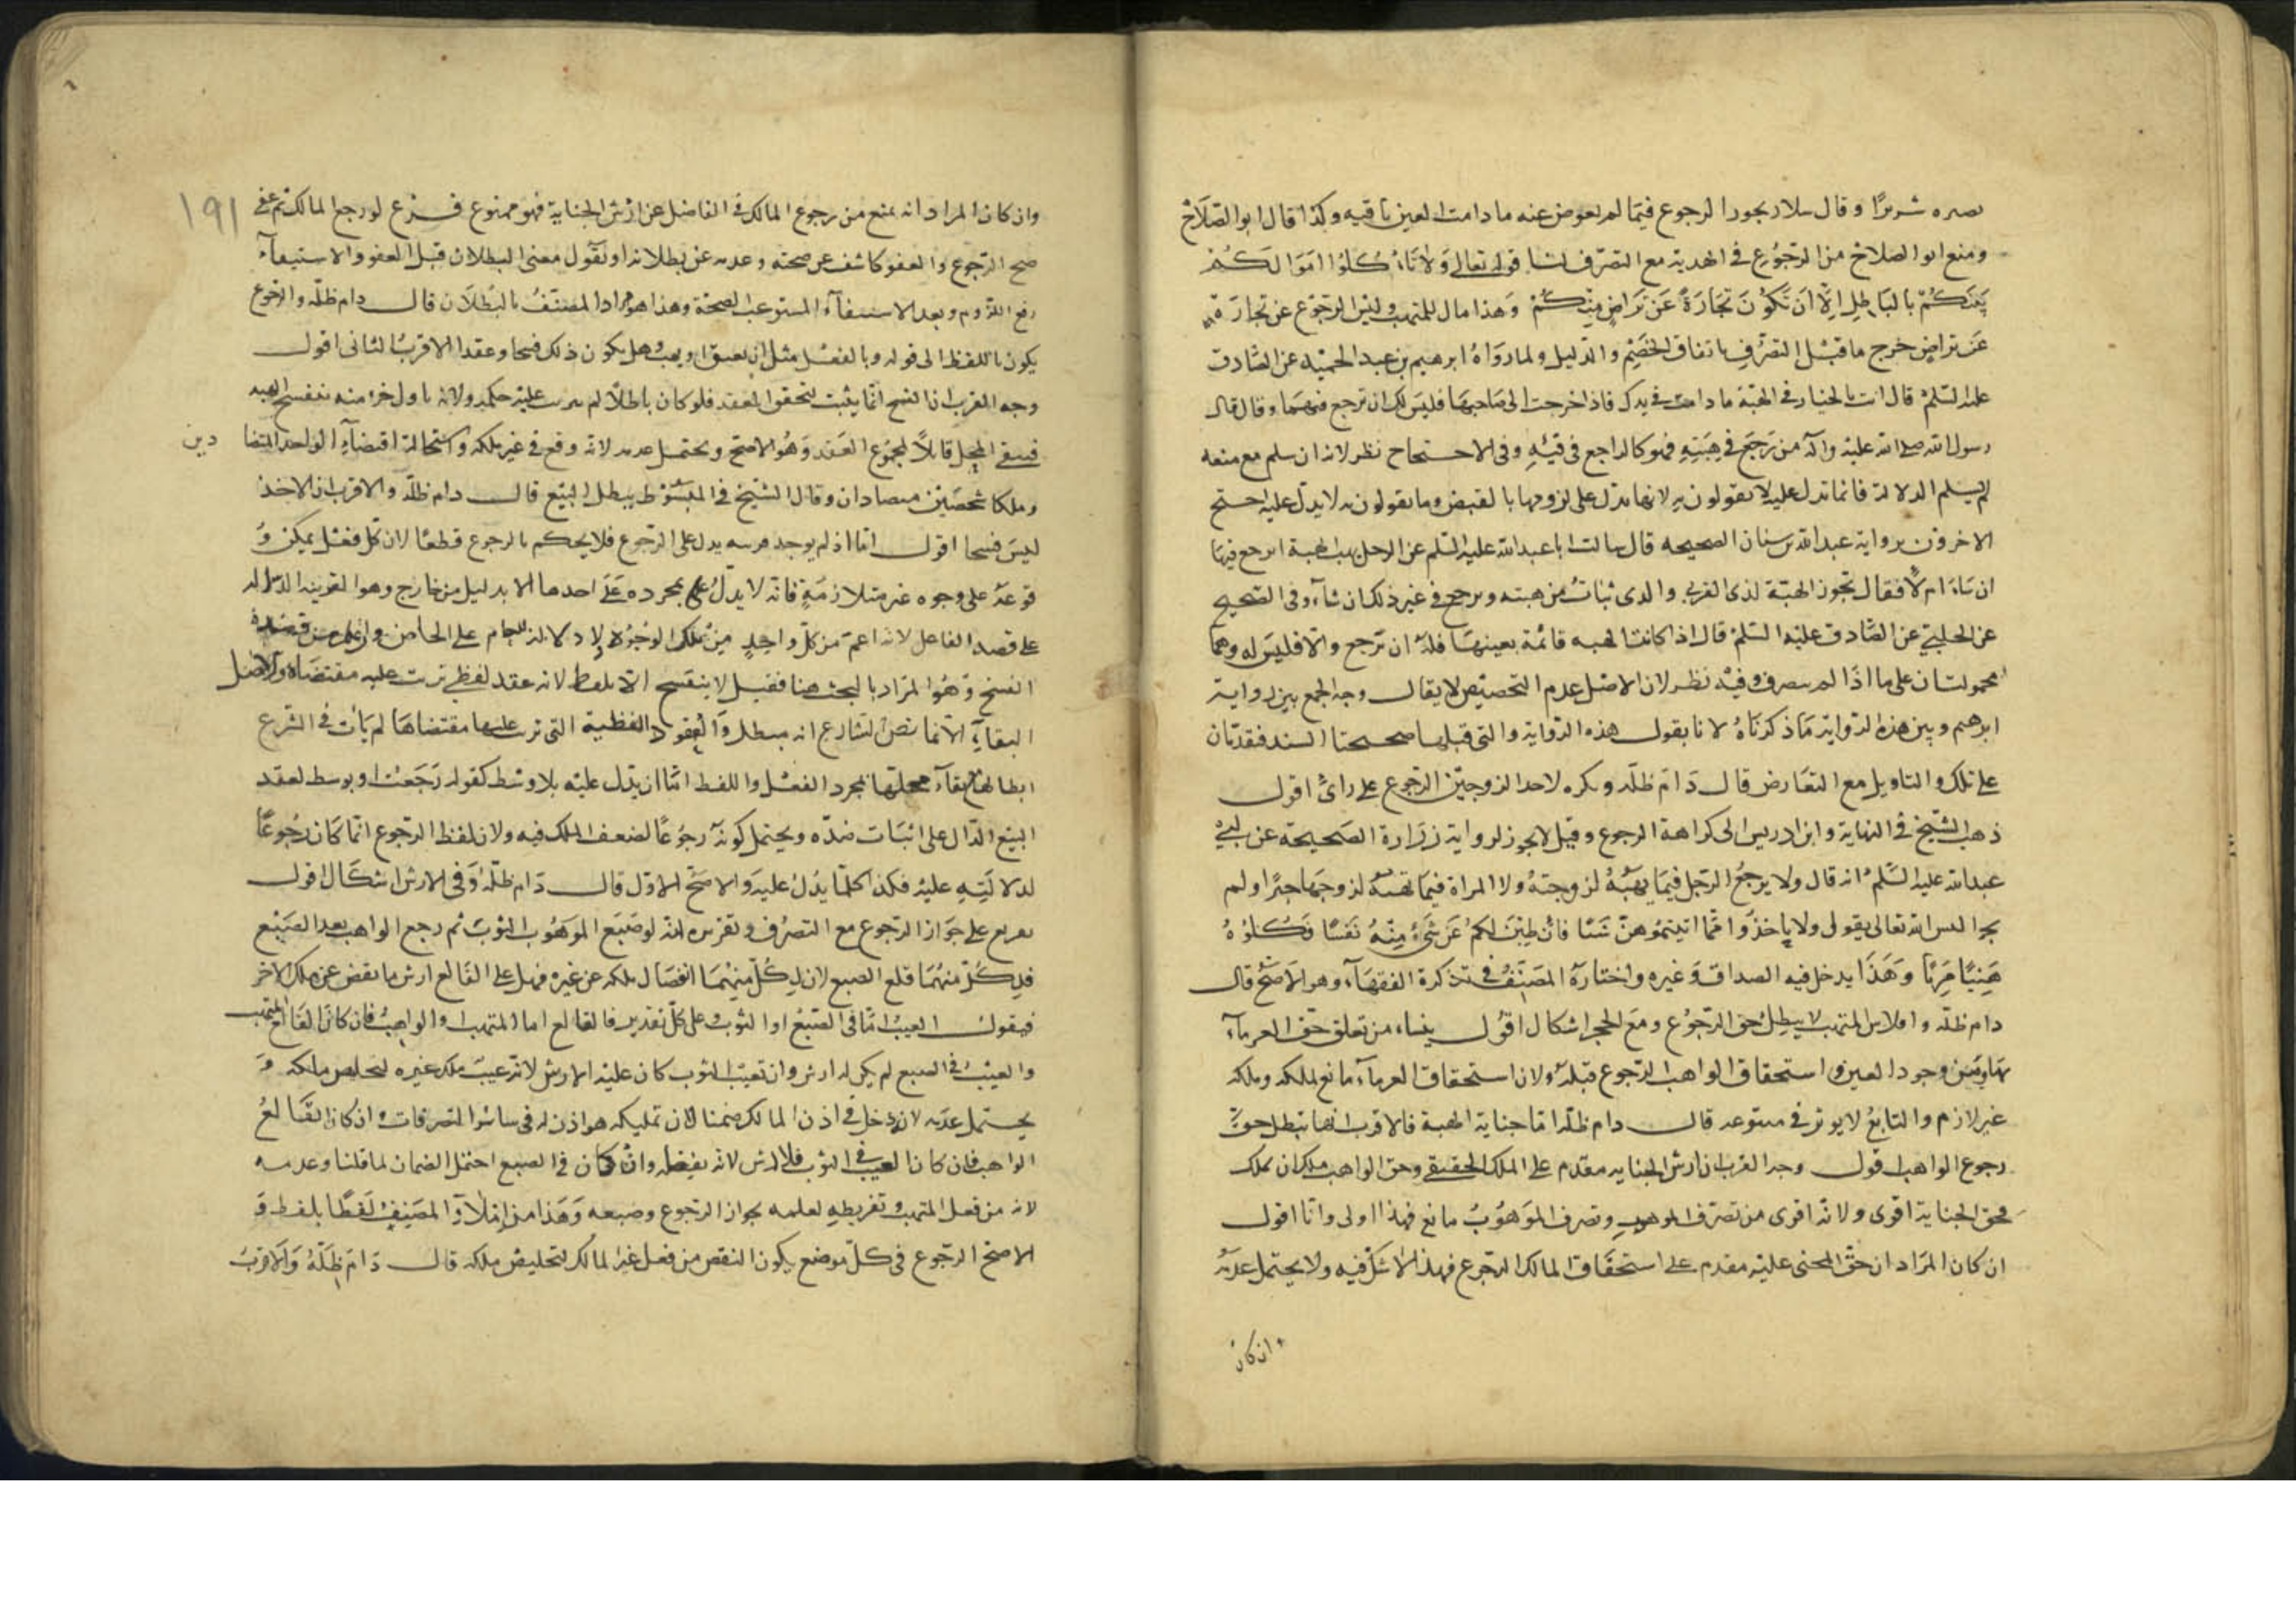 بصره شريرًا وقال سلار يجوز الرجوع فيما لم يعوض عنه ما دامت العين باقيه وكذا قال ابو الصلاح
ومنع ابو الصلاح من الرجوع في الهدية مع التصرف لنا قوله تعالى ولا تاكلوا اموالكم
بينكم بالباطل الا ان تكون تجارة عن تراض منكم وهذا مال للمتهب وليس الرجوع عن تجارة
عن تراض خرج ما قبل التصرف باتفاق الخصم والدليل ولما رواه ابرهيم بن عبد الحميد عن الصادق
عليه السلم قال انت بالخيار في الهبة ما دامت في يدك فاذا خرجت الى صاحبها فليس لك ان ترجع فيها وقال قال
رسول الله صلى الله عليه واله من رجع في هبته فهو كالراجع في قيئه وفي الاحتجاج نظر لانه ان سلم مع منعه
لم يسلم الدلالة فانما تدل عليه لا يقولون به لانها تدل على لزومها بالقبض وما يقولون به لا يدل عليه احتج
الاخرون برواية عبد الله بن سنان الصحيحه قال سالت ابا عبد الله عليه السلم عن الرجل يهب الهبة ايرجع فيها
ان شاء ام لا فقال تجوز الهبة لذي القربى والذي يثاب من هبته ويرجع في غير ذلك ان شاء وفي الصحيح
عن الحلبي عن الصادق عليه السلم قال اذا كانت الهبه قائمة بعينها فله ان ترجع والا فليس له وهما
محمولتان على ما اذا لم يتصرف وفيه نظر لان الاصل عدم التخصيص لا يقال وجه الجمع بين رواية
ابرهيم وبين هذه الرواية ما ذكرناه لانا نقول هذه الرواية والتي قبلها صحيحتا السند فقدمتان
على تلك والتاويل مع التعارض قال دام ظله ويكره لاحد الزوجين الرجوع على راى اقول
ذهب الشيخ في النهاية وابن ادريس الى كراهة الرجوع وقيل لا يجوز لرواية زرارة الصحيحة عن ابي
عبد الله عليه السلم انه قال ولا يرجع الرجل فيما يهبه لزوجته ولا المراة فيما تهبه لزوجها حيزا ولم
يحز اليس الله تعالى يقول ولا ياخذوا مما اتيتموهن شيئا فان طبن لكم عن شيء منه نفسا فكلوه
هنيئا مريئا وهذا يدخل فيه الصداق وغيره واختاره المصنف في تذكرة الفقهاء وهو الاصح قال
دام ظله وافلاس المتهب لا يبطل حق الرجوع ومع الحجر اشكال اقول ينشاء من تعلق حق الغرماء
بها ومن وجود العين واستحقاق الواهب الرجوع قبله ولان استحقاق الغرماء مانع لملكه وملكه
غير لازم والتابع لا يوثر في متبوعه قال دام ظله اما جناية الهبة فالاقرب انها تبطل حق
رجوع الواهب اقول وجه القرب ان ارش الجنايه مقدم على الملك الحقيقي وحق الواهب ملك ان يملك
فحق الجناية اقوى ولانه اقوى من تصرف الموهوب وتصرف الموهوب مانع فهذا اولى وانا اقول
ان كان المراد ان حق المجنى عليه مقدم على استحقاق المالك الرجوع فهذا لا شك فيه ولا يحتمل عدمه
ان كان
١٩١
وان كان المراد انه يمنع من رجوع المالك في الفاضل عن ارش الجناية فهو ممنوع فرع لو رجع المالك ثم عفي
صح الرجوع والعفو كاشف عن صحته وعدمه عن بطلانه او نقول معنى البطلان قبل العفو والاستيفاء
رفع اللزوم وبعد الاستيفاء المستوعب الصحة وهذا هو مراد المصنف بالبطلان قال دام ظله والرجوع
يكون باللفظ الى قوله وبالفعل مثل ان يعتق او يهب وهل يكون ذلك فسخا وعقدا الاقرب الثاني اقول
وجه القرب ان الفسخ انما يثبت لتحقق العقد فلو كان باطلا لم يترتب عليه حكمه ولانه باول جزء منه تنفسخ الهبه
فيبقى المحل قابلا لمجموع العقد وهو الاصح ويحتمل عدمه لانه وقع في غير ملكه واستحالة اقتضاء الواحد المتضا
دين
وملكا شخصين متضادان وقال الشيخ في المبسوط يبطل البيع قال دام ظله والاقرب ان الاخذ
ليس فسخا اقول اما اذا لم يوجد قرينه يدل على الرجوع فلا يحكم بالرجوع قطعا لان كل فعل يمكن و
قوعه على وجوه غير متلازمة فانه لا يدل بمجرده على احدها الا بدليل من خارج وهو القرينه الدالة
على قصد الفاعل لانه اعم من كل واحد من تلك الوجوه ولا دلالة للعام على الخاص وان علم من قصده
الفسخ وهو المراد بالبحث هنا فقيل لا ينفسخ الا بلفظ لانه عقد لفظي ترتب عليه مقتضاه والاصل
البقاء الا فما نص الشارع انه مبطل والعقود اللفظية التي ترتب عليها مقتضاها لم يات في الشرع
ابطالها مع بقاء محلها بمجرد الفعل واللفظ اما ان يدل عليه بلا وسط كقوله رجعت او بوسط لعقد
البيع الدال على اثبات ضده ويحتمل كونه رجوعا لضعف الملك فيه ولان لفظ الرجوع انما كان رجوعا
لدلالته عليه فكذا كلما يدل عليه والاصح الاول قال دام ظله وفي الارش اشكال اقول
تفريع على جواز الرجوع مع التصرف وتقريره انه لو صبغ الموهوب الثوب ثم رجع الواهب بعد الصبغ
فلكل منهما قلع الصبع لان لكل منهما انفصال ملكه عن غيره فهل على القالع ارش ما نقص عن ملك الاخر
فيقول العيب اما في الصبغ او الثوب وعلى كل تقدير فالقالع اما المتهب او الواهب فان كان القالع المتهب
والعيب في الصبع لم يكن له ارش وان تعيب الثوب كان عليه الارش لانه عيب ملك غيره لتخلص ملكه و
يحتمل عدمه لانه دخل في اذن المالك ضمنا لان تمليكه هو اذن له في سائر التصرفات وان كان القالع
الواهب فان كان العيب في الثوب فلا ارش لانه بفعله وان كان في الصبع احتمل الضمان لما قلنا وعدمه
لانه من فعل المتهب وتفريطه لعلمه بجواز الرجوع وضبعه وهذا من املاء المصنف لفظا بلفظ و
الاصح الرجوع في كل موضع يكون النقص من فعل غير المالك لتخليص ملكه قال دام ظله والاقرب